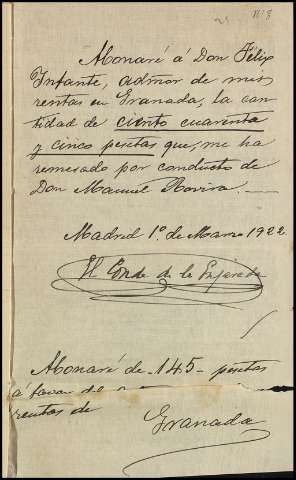 Nº 8
Abonaré á Don Félix
Infante, admor de mis
rentas en Granada, la can-
tidad de ciento cuarenta
y cinco pesetas que, me ha
remesado por conducto de
Don Manuel Rovira.
Madrid 1º. de Marzo 1922
El Conde de la
Abonaré de 145 - pesetas
á favor del
rentas de
Granada